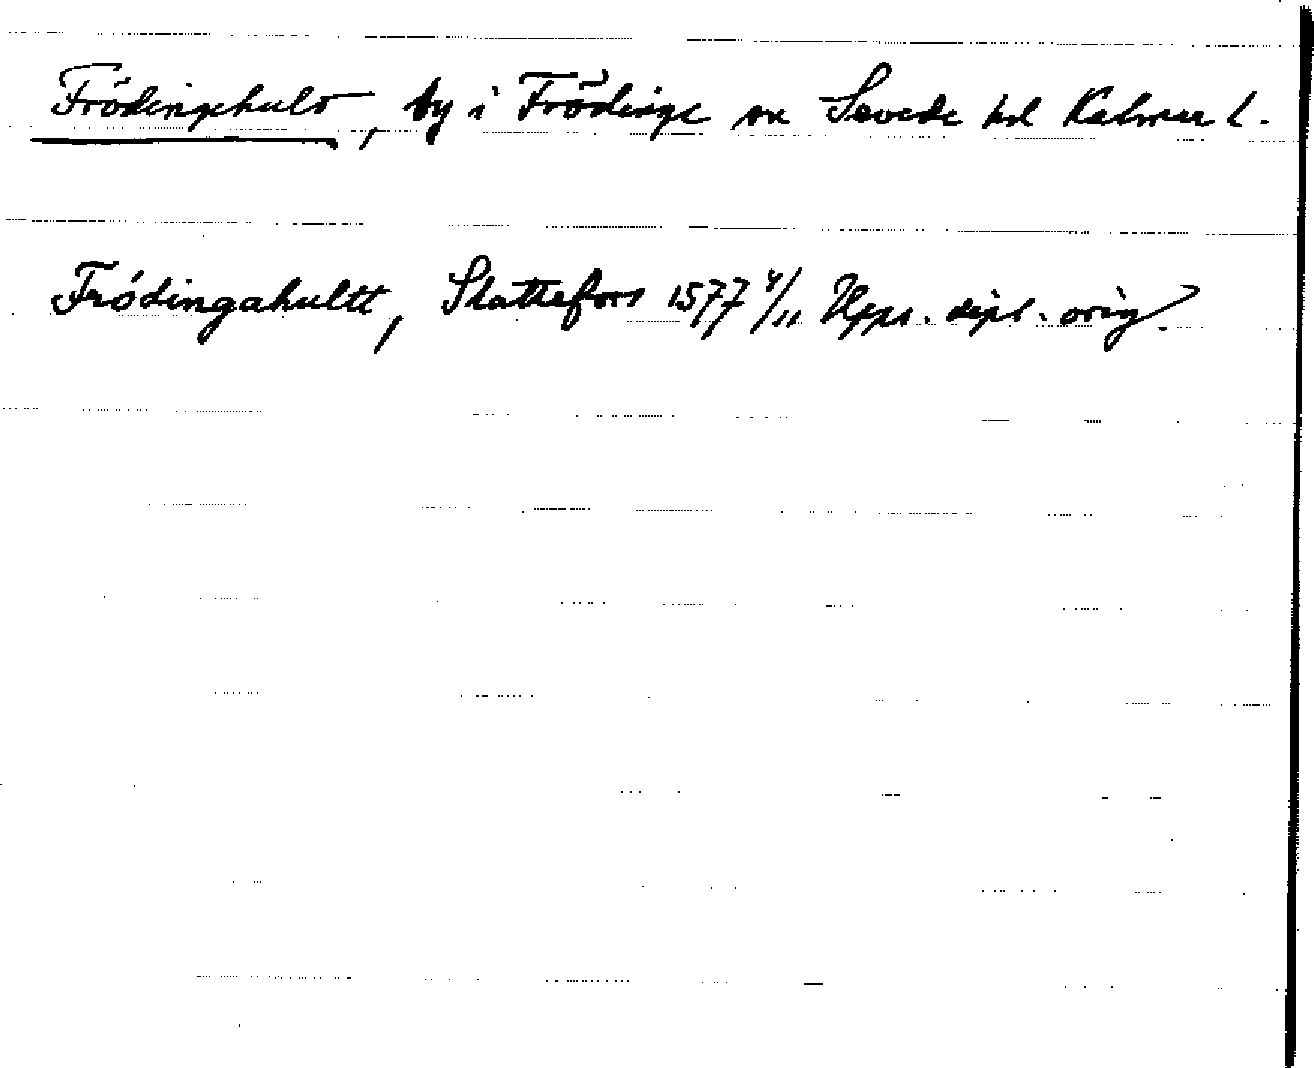 Frödingehult, by i Frödinge sn Sevede hd Kalmar l.
Frödingahultt, Slattefors 1577 4/11 Upps. dipl. orig.